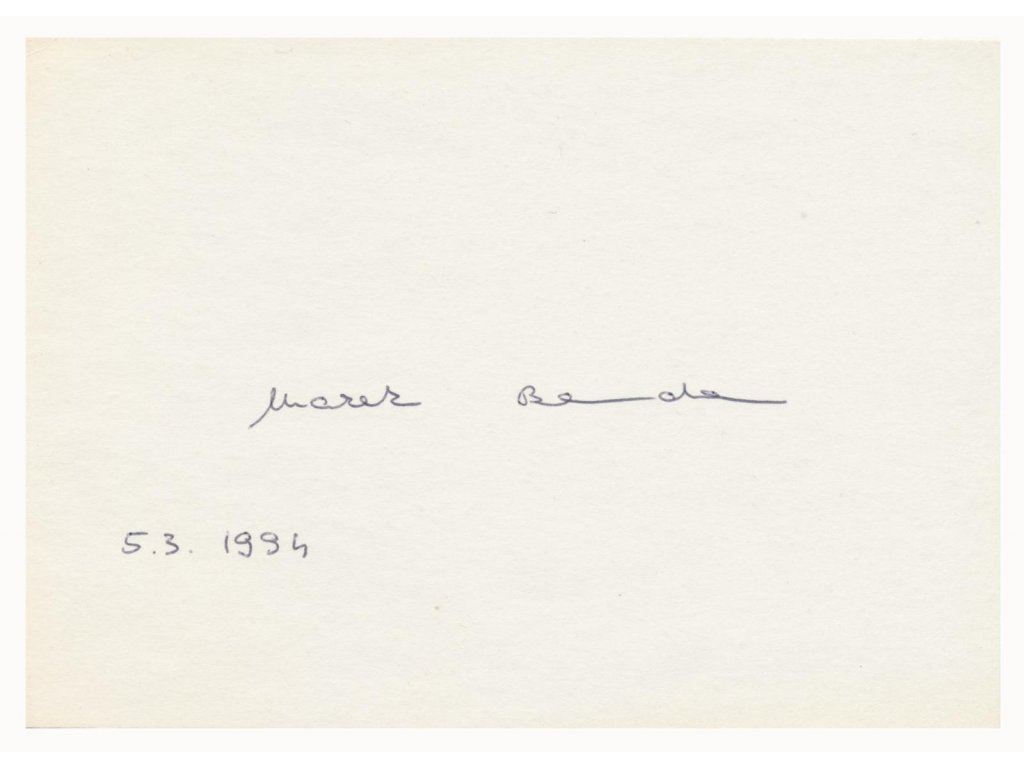 Marek Benda
5.3. 1994